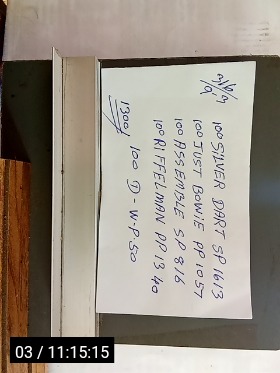 100 SILVER DART SP 1613
100 JUST BOWIE PP 1057
100 ASSEMBLE SP 816
100 RIFFELMAN PP 1340
1300/ 100 D-W-P.50
03 / 11:15:15